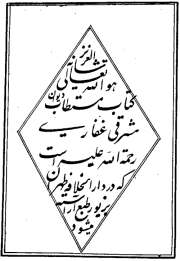 هو الله تعالی العزیز
کتاب مستطاب دیوان
مشرقی غفاری
رحمة الله علیه است
که در دار الخلافه طهران
بزیور طبع آراسته
میشود